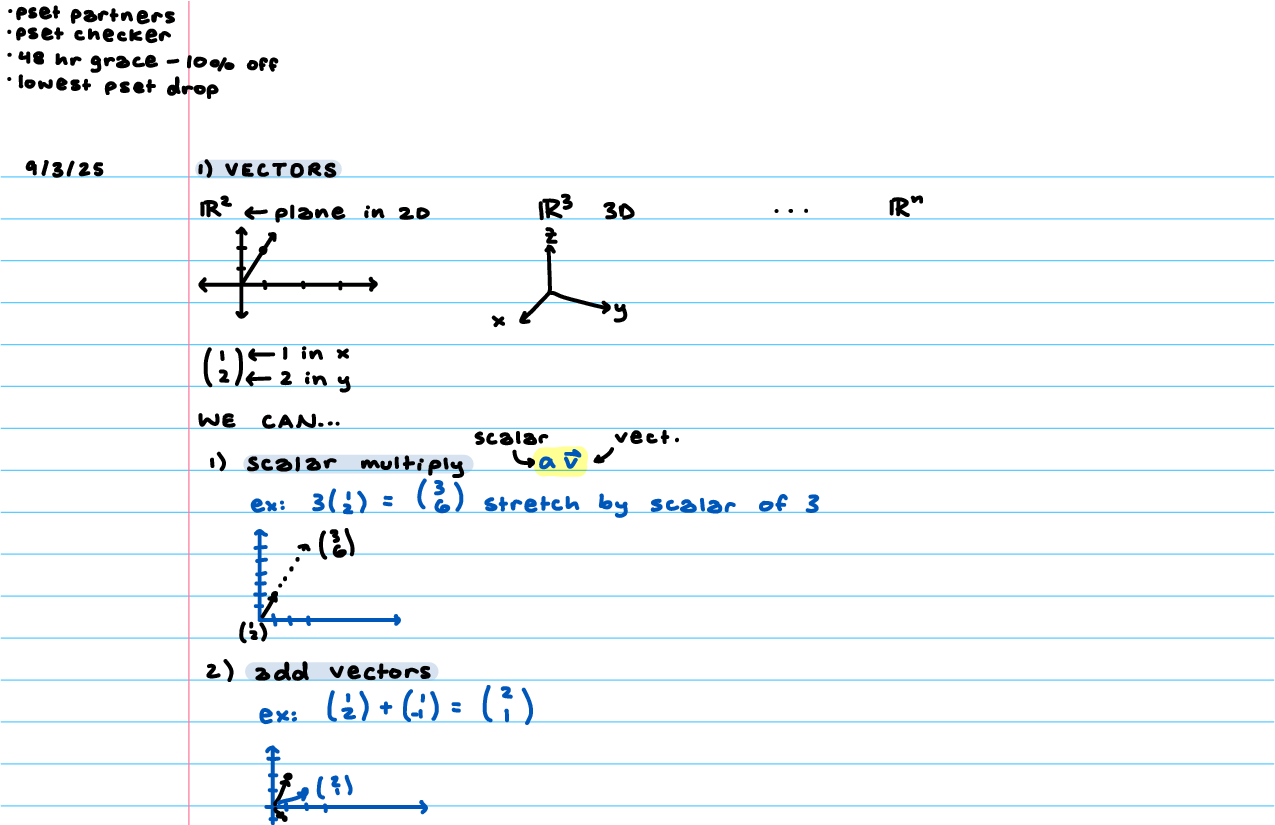 ·pset partners
·pset checker
·48 hr grace – 10% off
·lowest pset drop
9/3/25
1) VECTORS
ℝ² ← plane in 2D ℝ³ 3D ... ℝⁿ
z
x y
(1 2) ← 1 in x
← 2 in y
WE CAN...
scalar vect.
1) scalar multiply → a v⃗ ←
ex: 3(1 2) = (3 6) stretch by scalar of 3
(3 6)
(1 2)
2) add vectors
ex: (1 2) + (1 -1) = (2 1)
(2 1)